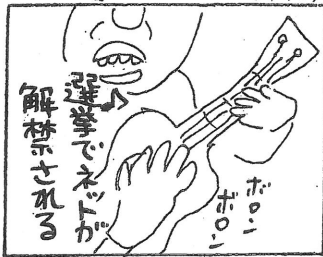 選挙でネットが
解禁される
ボロン
ボロン